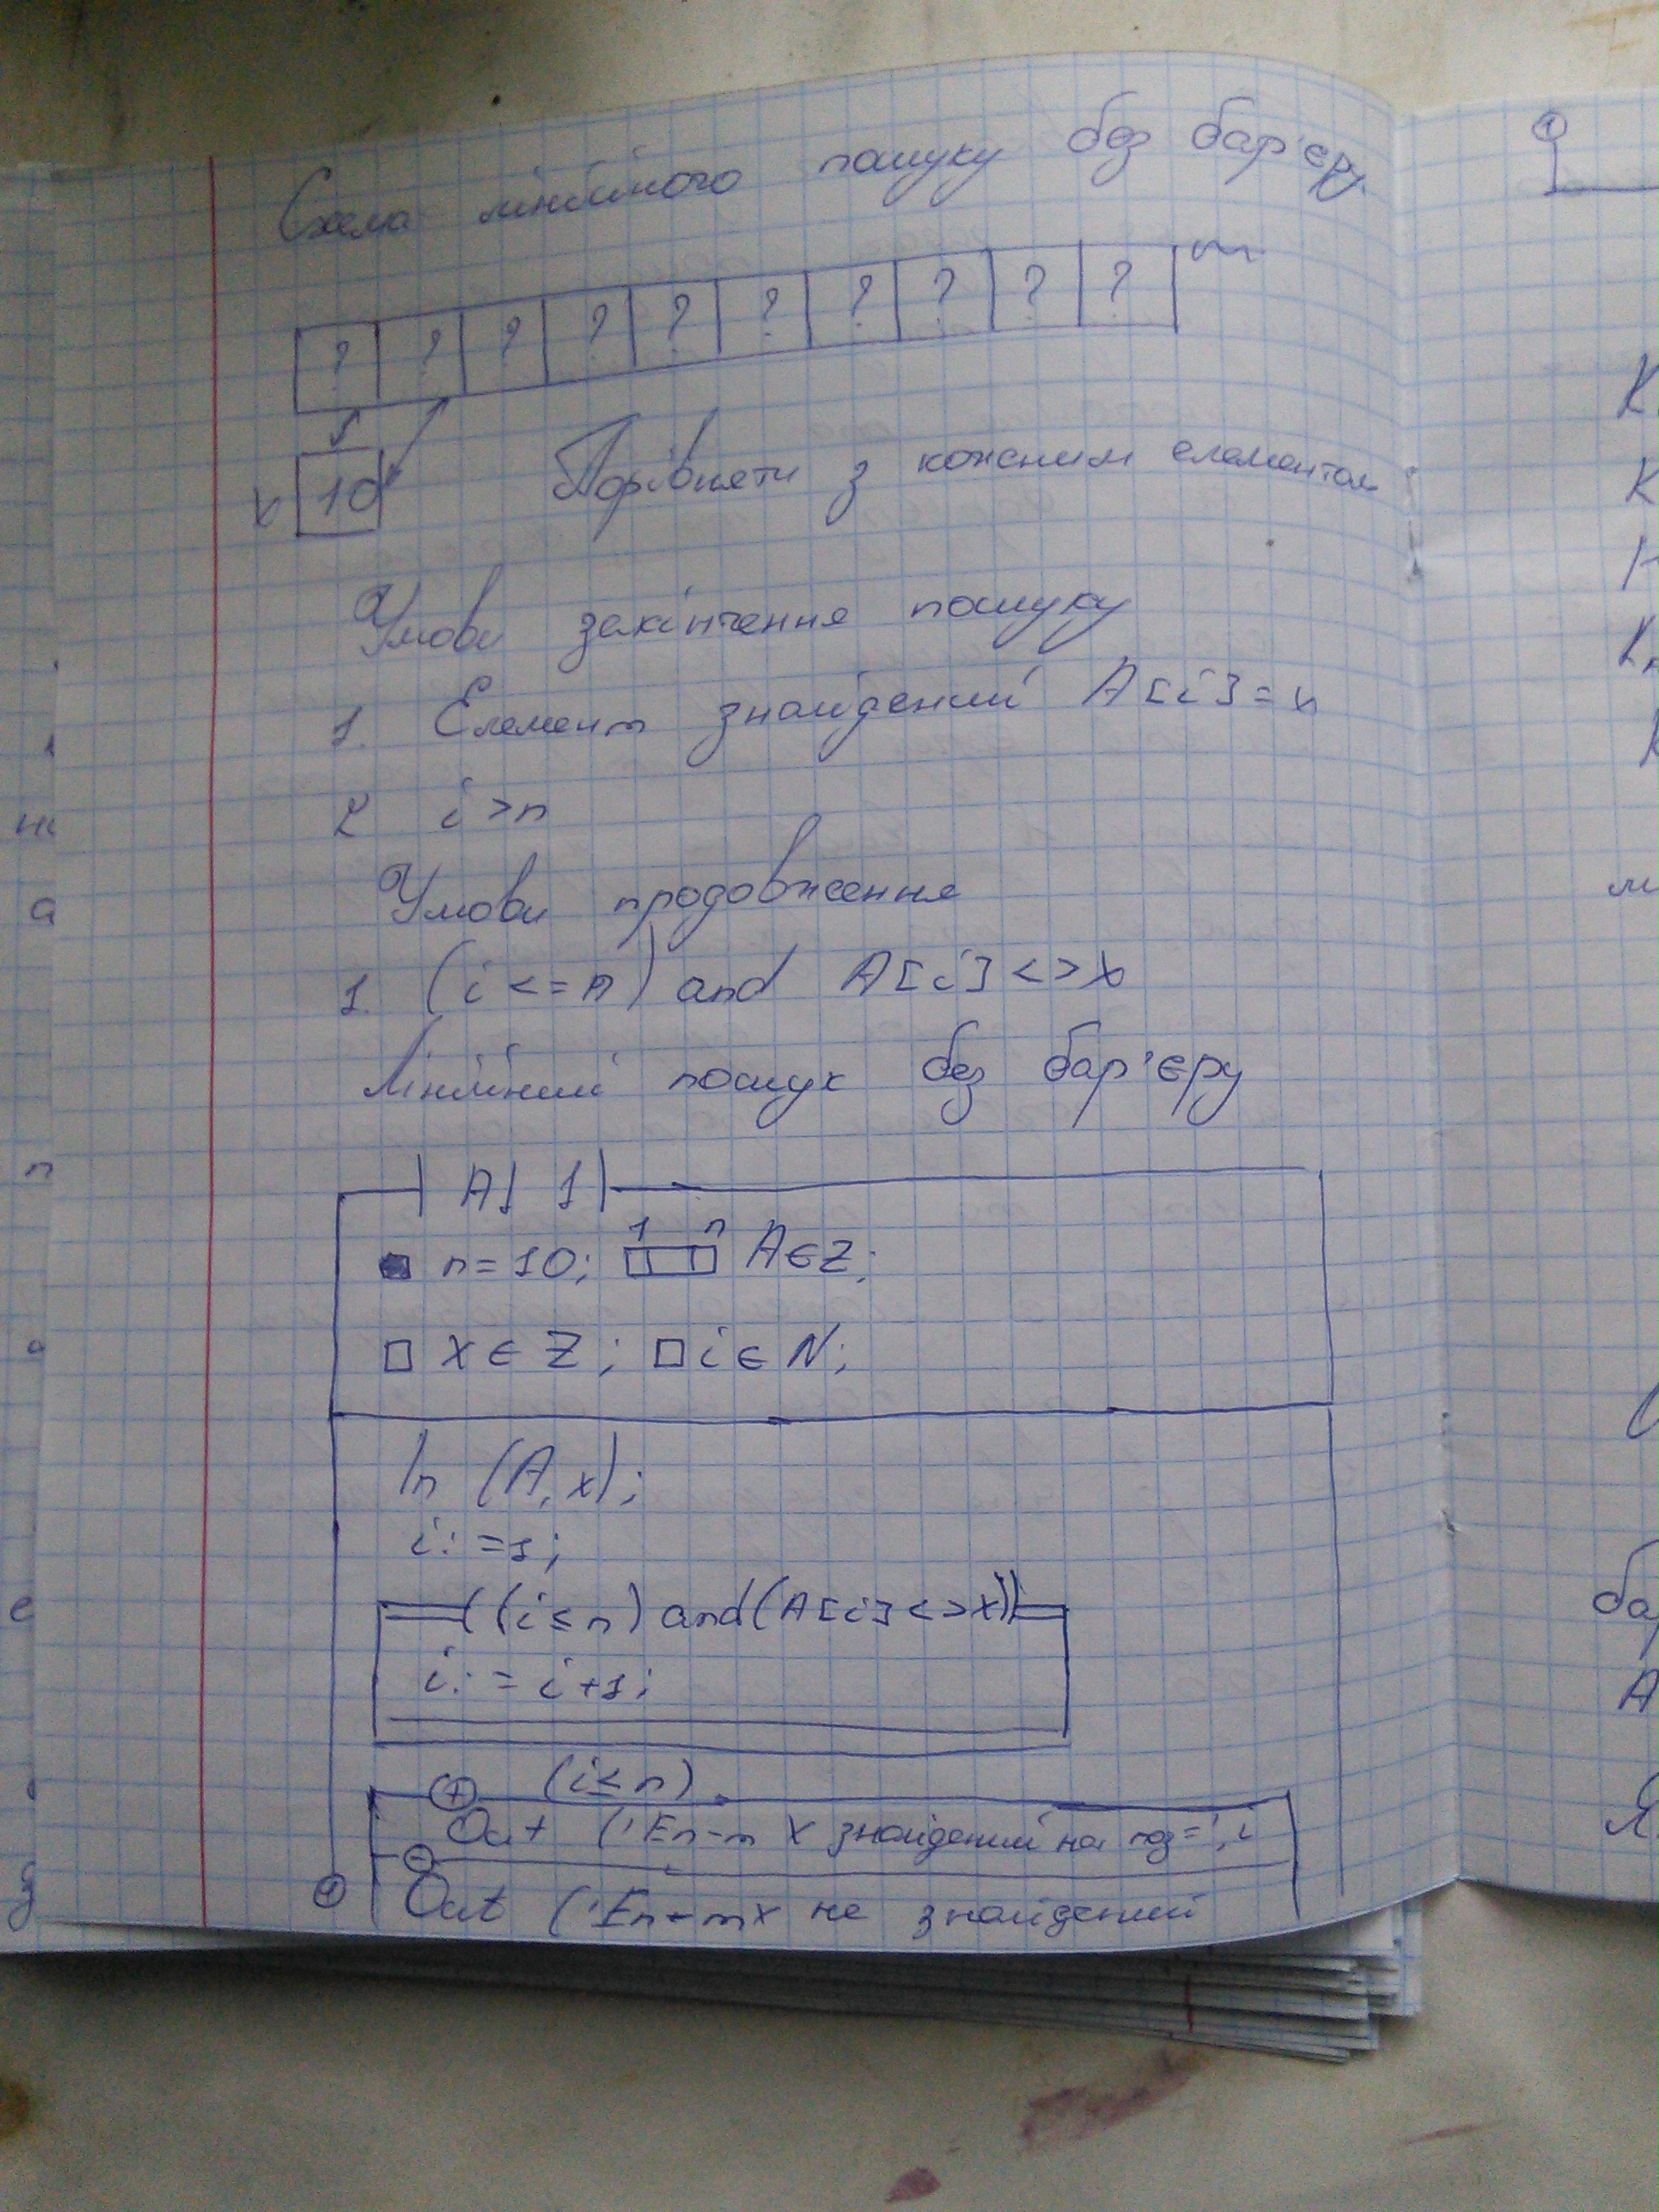 Схема лінійного пошуку без бар'єру
? ? ? ? ? ? ? ? ? ?
x 10 Порівняти з кожним елементом
Умови закінчення пошуку
1. Елемент знайдений A[i]=x
2 i>n
Умови продовження
1. (i<=n) and A[i]<>x
Лінійний пошук без бар'єру
A1 1
n=10; 1 n A∈Z;
x∈Z; i∈N;
In (A,x);
i:=1;
((i≤n) and (A[i]<>x))
i:=i+1;
+ (i≤n)
Out ('Ел-т x знайдений на поз=', i
-
1 Out ('Ел-т x не знайдений
1
К
К
Н
К
К
ба
А
Я